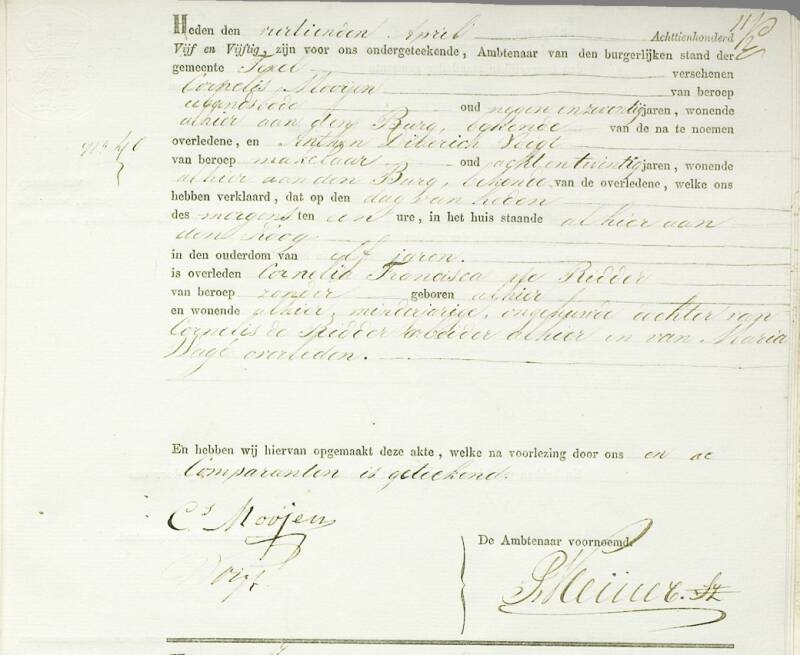 Heden den veertienden April Achttienhonderd
Vijf en Vijftig, zijn voor ons ondergeteekende, Ambtenaar van den burgerlijken stand der
gemeente Texel verschenen
Cornelis Mooijen van beroep
oud negen en zeventig jaren, wonende
alhier aan den Burg, bekende van de na te noemen
overledene, en Anthon Diderich Voigt
van beroep makelaar oud acht en twintig jaren, wonende
alhier aan den Burg, bekende van de overledene, welke ons
hebben verklaard, dat op den dag van heden
des morgens ten een ure, in het huis staande alhier aan
den Koog
in den ouderdom van elf jaren.
is overleden Cornelia Francisca de Ridder
van beroep zonder geboren alhier
en wonende alhier, minderjarige, ongehuwde dochter van
Cornelis de Ridder alhier en van Maria
Dagé overleden.
En hebben wij hiervan opgemaakt deze akte, welke na voorlezing door ons en de
Comparanten is geteekend.
Cs Mooijen
De Ambtenaar voornoemd.
Voigt